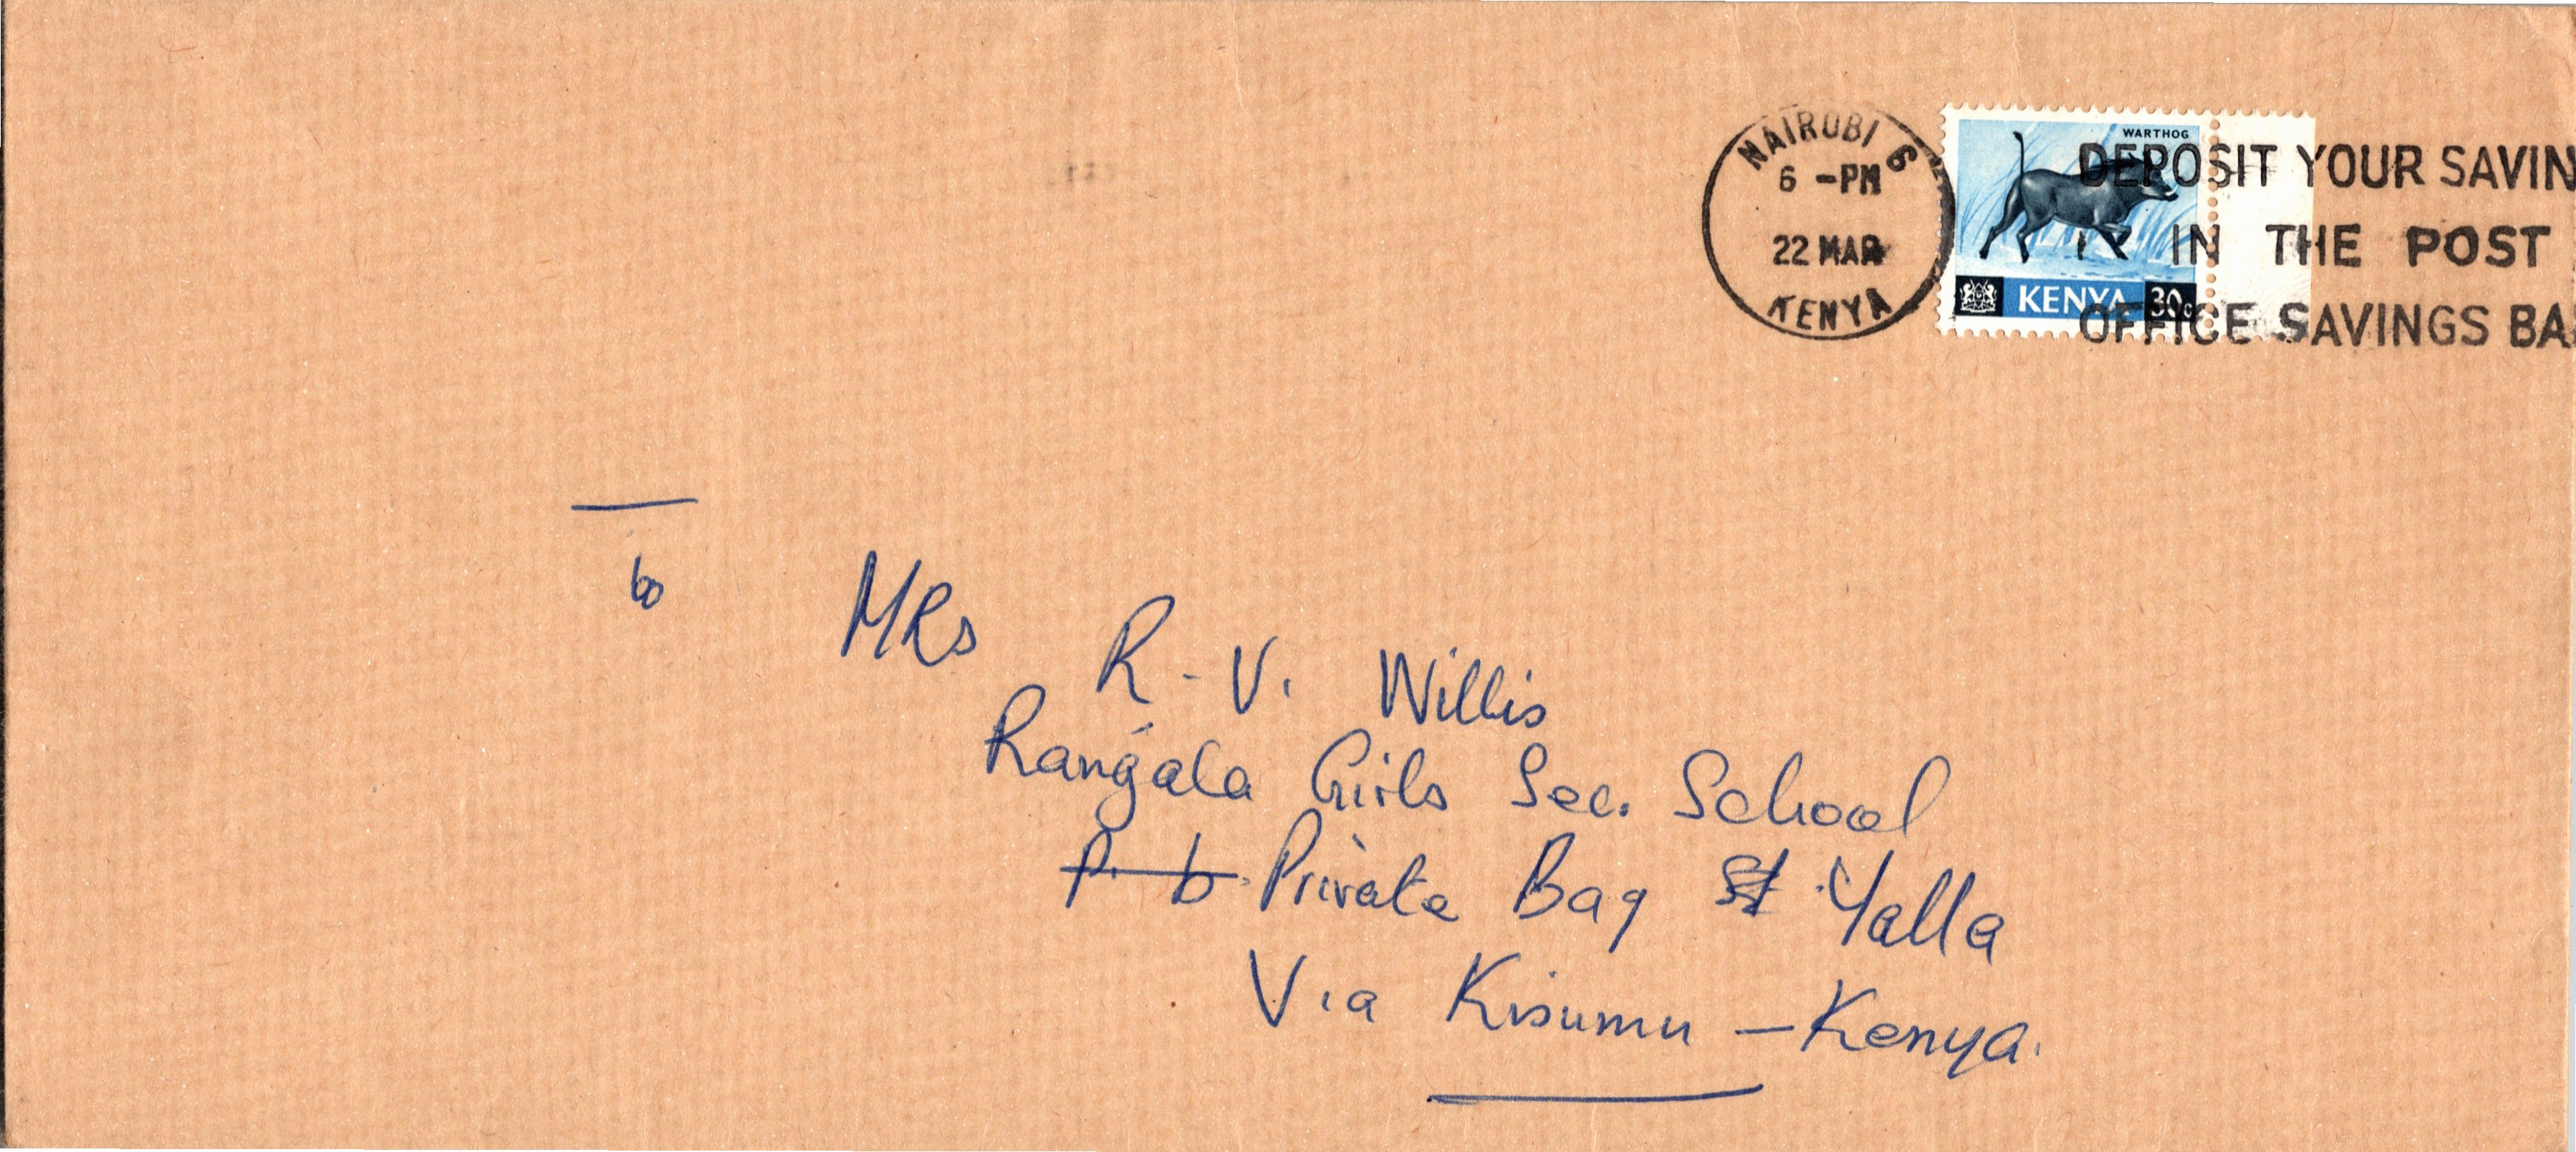 NAIROBI 6
6 -PM
22 MAR
KENYA
WARTHOG
KENYA 30c
DEPOSIT YOUR SAVIN
IN THE POST
OFFICE SAVINGS BA
to
MRs R. V. Willis
Rangala Girls Sec. School
P. b. Private Bag St Yalla
Via Kisumu - Kenya.